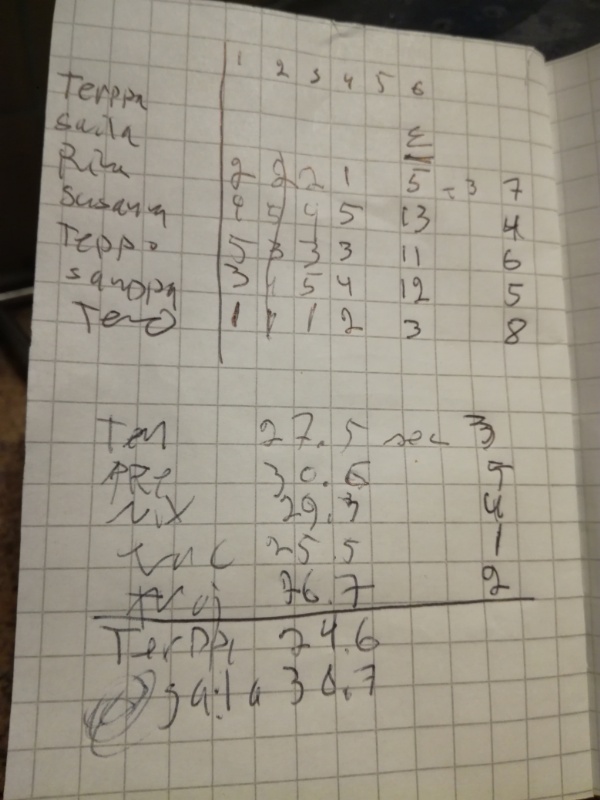 1 2 3 4 5 6
Terppa
Saila
Σ
2 2 2 1 5 = 3 7
Susanna 4 4 5 13 4
Teppo 5 3 3 3 11 6
Samppa 3 5 4 12 5
Tero 1 1 1 2 3 8
27.5 sec 3
30.6 5
29.3 4
25.5 1
26.7 2
Terppa 24.6
Saila 30.7